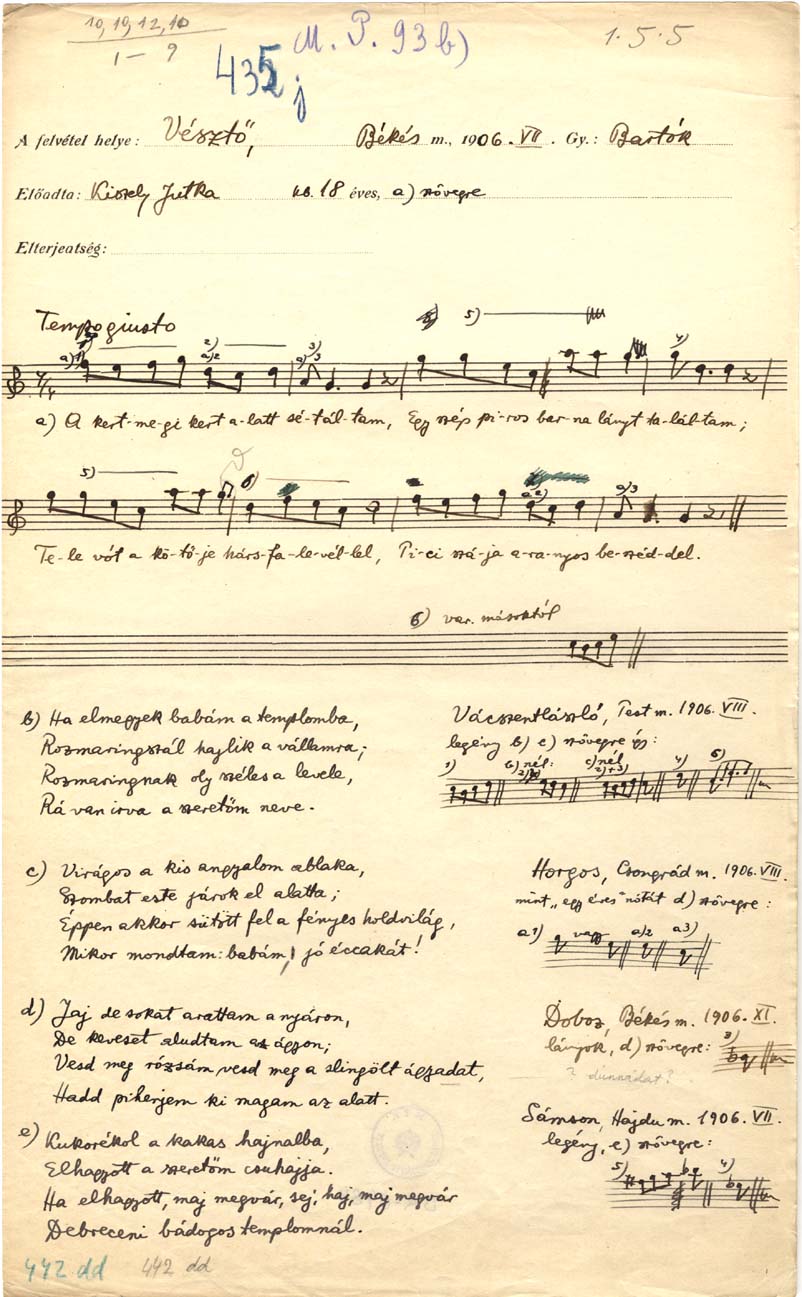 10, 10, 12, 10
1 – 9
M. P. 93 b)
1 · 5 · 5
435 j
A felvétel helye: Vésztő, Békés m., 1906. VII. Gy.: Bartók
Előadta: Kiszely Jutka kb. 18 éves, a) szövegre
Elterjeatség:
Tempo giusto
5)
1) 2) 3) 4)
a) A kert-me-gi kert a-latt sé-tál-tam, Egy szép pi-ros bar-na lányt ta-lál-tam;
5) 6)
Te-le vót a kö-tő-je hárs-fa-le-vél-lel, Pi-ci szá-ja a-ra-nyos be-széd-del.
6) var. másoktól
b) Ha elmegyek babám a templomba,
Rozmaringszál hajlik a vállamra;
Rozmaringnak oly széles a levele,
Rá van irva a szeretőm neve.
Vácszentlászló, Pest m. 1906. VIII.
legény b) c) szövegre így:
1) b) nél: c) nél 2)+3) 4) 5)
c) Virágos a kis angyalom ablaka,
Szombat este járok el alatta;
Éppen akkor sütött fel a fényes holdvilág,
Mikor mondtam: babám, jó éccakát!
Horgos, Csongrád m. 1906. VIII.
mint „egy éves" nótát d) szövegre:
a1) vagy a)2 a3)
d) Jaj de sokat arattam a nyáron,
De keveset aludtam az ágyon;
Vesd meg rózsám, vesd meg a slingölt ágyadat,
Hadd piherjem ki magam az alatt.
Doboz, Békés m. 1906. XI.
lányok, d) szövegre: 3)
? dunnádat?
e) Kukorékol a kakas hajnalba,
Elhagyott a szeretőm csuhajja.
Ha elhagyott, maj megvár, sej, haj, maj megvár
Debreceni bádogos templomnál.
Sámson, Hajdu m. 1906. VII.
legény, e) szövegre:
5) 4)
442 dd 442 dd